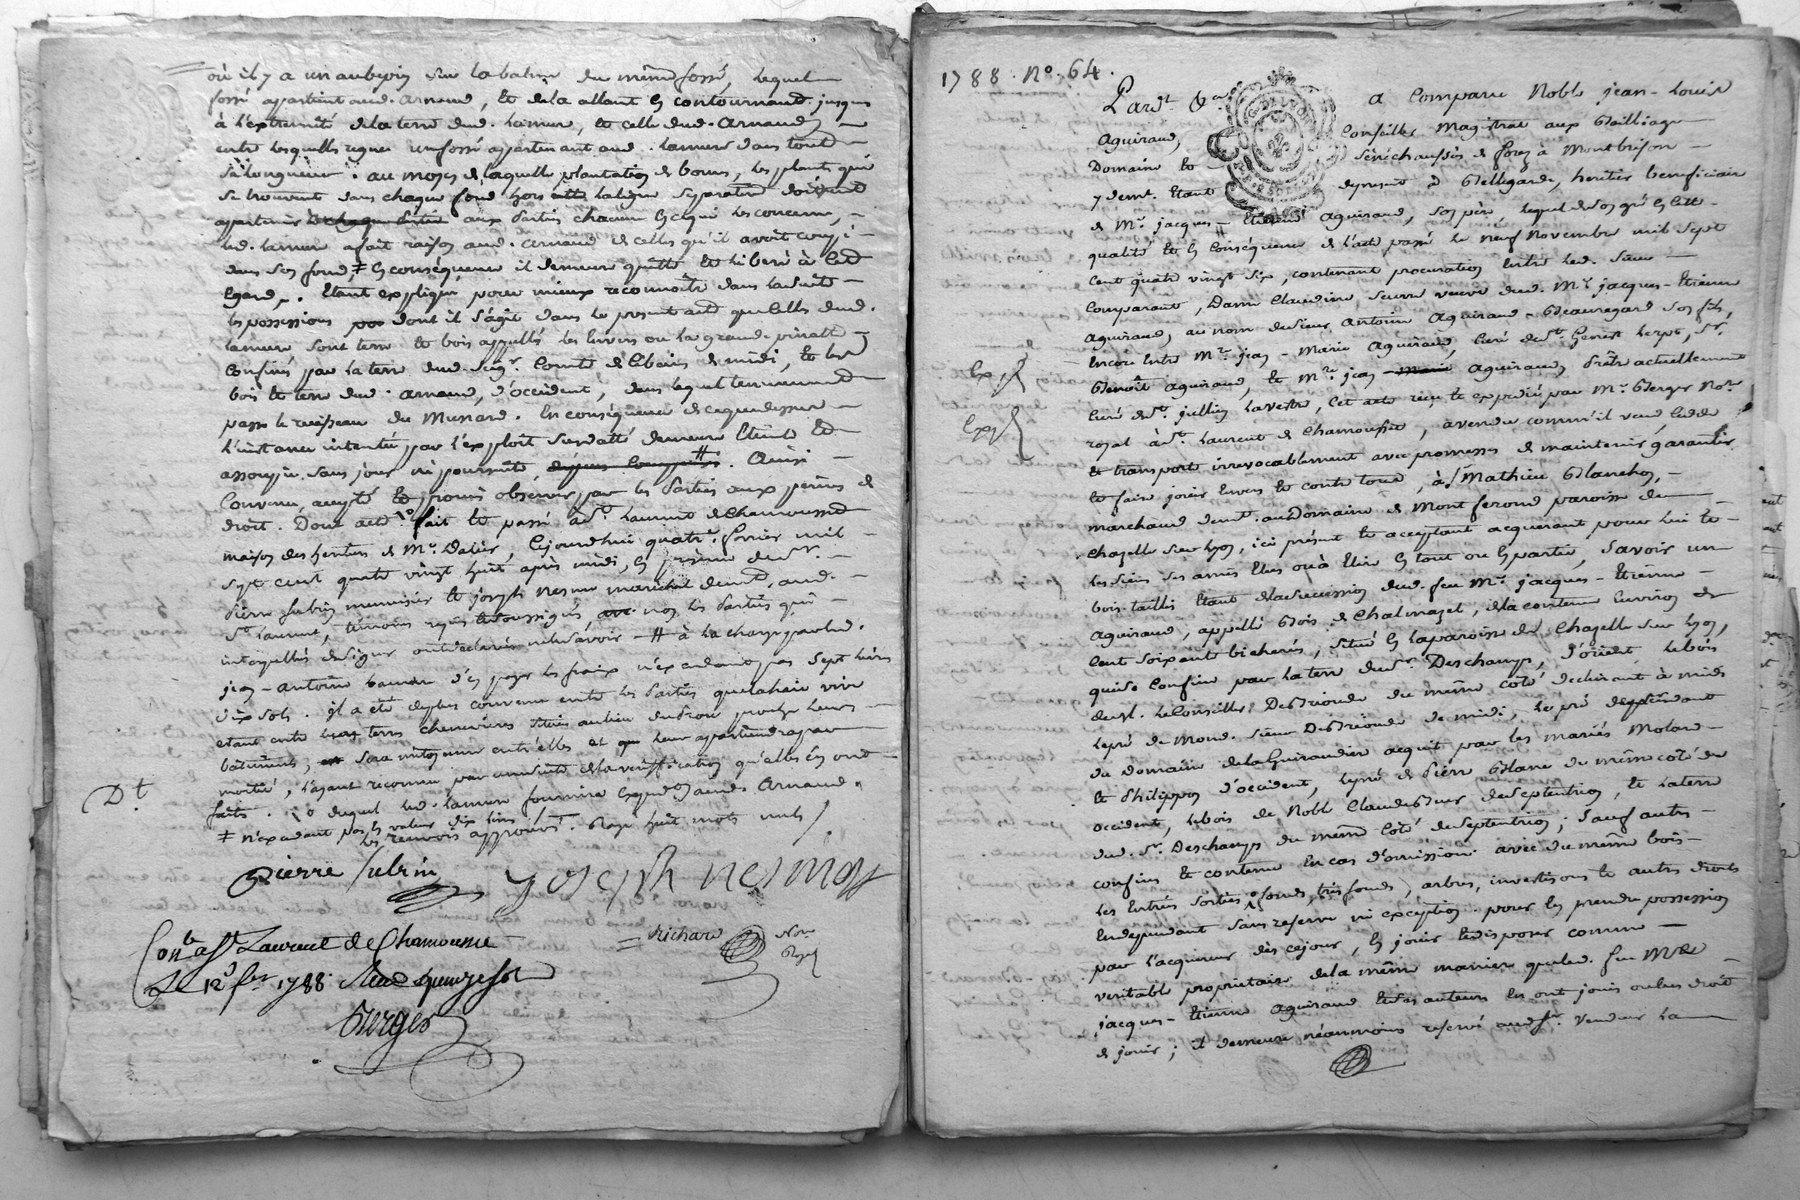 où il y a un aubepin sur la balme du même fossé, lequel
fossé appartient aud. Arnaud, et de la allant en contournant jusques
à l'extremité de la terre dud. Lameur, et celle dud. Arnaud,
entre lesquelles regne un fossé appartenant aud. Lameur dans toute
sa longueur. au moyen de laquelle plantation de bornes, les plants qui
se trouvent dans chaque fond hors la ligne separative doivent
appartenir aux Parties chacune en ce qui les concerne,
led. Lameur a fait raison aud. Arnaud de celles qu'il avoit coupé
dans son fond ‡ En conséquence il demeure quitte et liberé à cet
Egard. Etant expliqué pour mieux reconnoitre dans la suite
les possessions dont il s'agit dans le present acte que celles dud.
Lameur sont terre et bois appellés les
confinés par la terre dud. Seigr. Comte de de midi, et les
bois et terre dud. Arnaud, d'occident, dans lequel tennement
passe le ruisseau du Munard. En conséquence de ce que dessus
l'instance intentée par l'exploit susdatté demeure éteinte et
assoupie sans jour ni poursuite. Ainsi
convenu, accepté et promis observer par les Parties aux peines de
droit. Dont acte fait et passé à St. Laurent de Chamousset
maison des heritiers de Mr. Dalier, cejourd'hui quatre fevrier mil
sept cent quatre vingt huit après midi, en présence de Sr.
Pierre Subrin menuisier et joseph Nesme marechal demt. aud.
St. Laurent, témoins requis et soussignés, non les Parties qui
interpellées de signer ont declaré ne le savoir # à la charge par led.
jean-antoine Lameur d'en payer les fraix n'excedant pas sept livres
dix sols. il a été de plus convenu entre les Parties que la haie vive
etant entre leurs terres chenevieres situées au lieu
bâtiments, sera mitoyenne entr'elles et leur appartiendra par
moitié, l'ayant reconnu par une suite de la verification qu'elles en ont
faite. duquel led. Lameur fournira Expedon. aud. Arnaud
Dt.
‡ n'excedant pas la valeur dix livres
les renvois approuvés. Rayé huit mots nuls /.
Pierre Subrin joseph nesmoz
Richard Nore
Royal
Conle. à St Laurent de Chamousset
Le 12 fer 1788. Reçu quinze sols
Berger
1788. No. 64.
Pardt. &a. a Comparu Noble jean-Louis
Aguiraud, Conseiller Magistrat aux Bailliage
Domaine et Sénéchaussée de forez à Montbrison
y demt. Etant de present à Bellegarde, heritier beneficiaire
de Mr. jacques-Etienne Aguiraud, son père, lequel de son gré en cette
qualité et en conséquence de l'acte passé le neuf Novembre mil sept
cent quatre vingt six, contenant procuration entre led. Sieur
Comparant, Dame Claudine veuve dud. Mr. jacques-Etienne
Aguiraud, au nom du Sieur Antoine Aguiraud-Beauregard son fils,
Encore entre Mre. jean-Marie Aguiraud, Curé de St. Genest Lerpt, Sr.
Benoît Aguiraud, et Mre. jean Aguiraud, Prêtre actuellement
Curé de St. jullien Lavestre, cet acte reçu et expedié par Me. Berger Nore.
royal à St. Laurent de Chamousset, a vendu comm'il vend cede
et transporte irrevocablement avec promesses de maintenir garantir
et faire jouir Envers et contre tous, à Sr. Mathieu Blanchon,
marchand demt. au Domaine de Montferond paroisse de
Chazelle sur Lyon, ici présent et acceptant acquerant pour lui et
les siens ses amis Elus ou à Elire En tout ou En partie, Savoir un
bois taillis Etant de la succession dud. feu Mr. jacques-Etienne
Aguiraud, appellé Bois de Chalmazel, de la contenue Environ de
cent soixante bicherées, situé En la paroisse de Chazelle sur Lyon,
qui se confine par la terre du Sr. Deschamps, d'orient, le bois
de Mr. Le Conseiller Desrioudes du même côté declinant à midi
le pré de Mond. Sieur Desrioudes de midi, le pré dependant
du Domaine de la Guiraudiere acquit par les mariés Molard
et Philippon d'occident, le pré de Pierre Blanc du même côté du
occident, le bois de Noble Claude du Septentrion, et la terre
dud. Sr. Deschamps du même côté du Septentrion; sauf autres
confins et contenue En cas d'omission. avec du même bois
les Entrées sorties fonds, tres fonds, arbres, investisons et autres droits
En dependant sans reserve ni exception. pour En prendre possession
par l'acquereur dès cejour, En jouir et disposer comme
veritable proprietaire de la même maniere que led. feu Mre
jacques-Etienne Aguiraud et ses auteurs En ont joui ou eu droit
de jouir; il demeure néanmoins reservé aud. Sr. Vendeur la
Exp.
Exp.